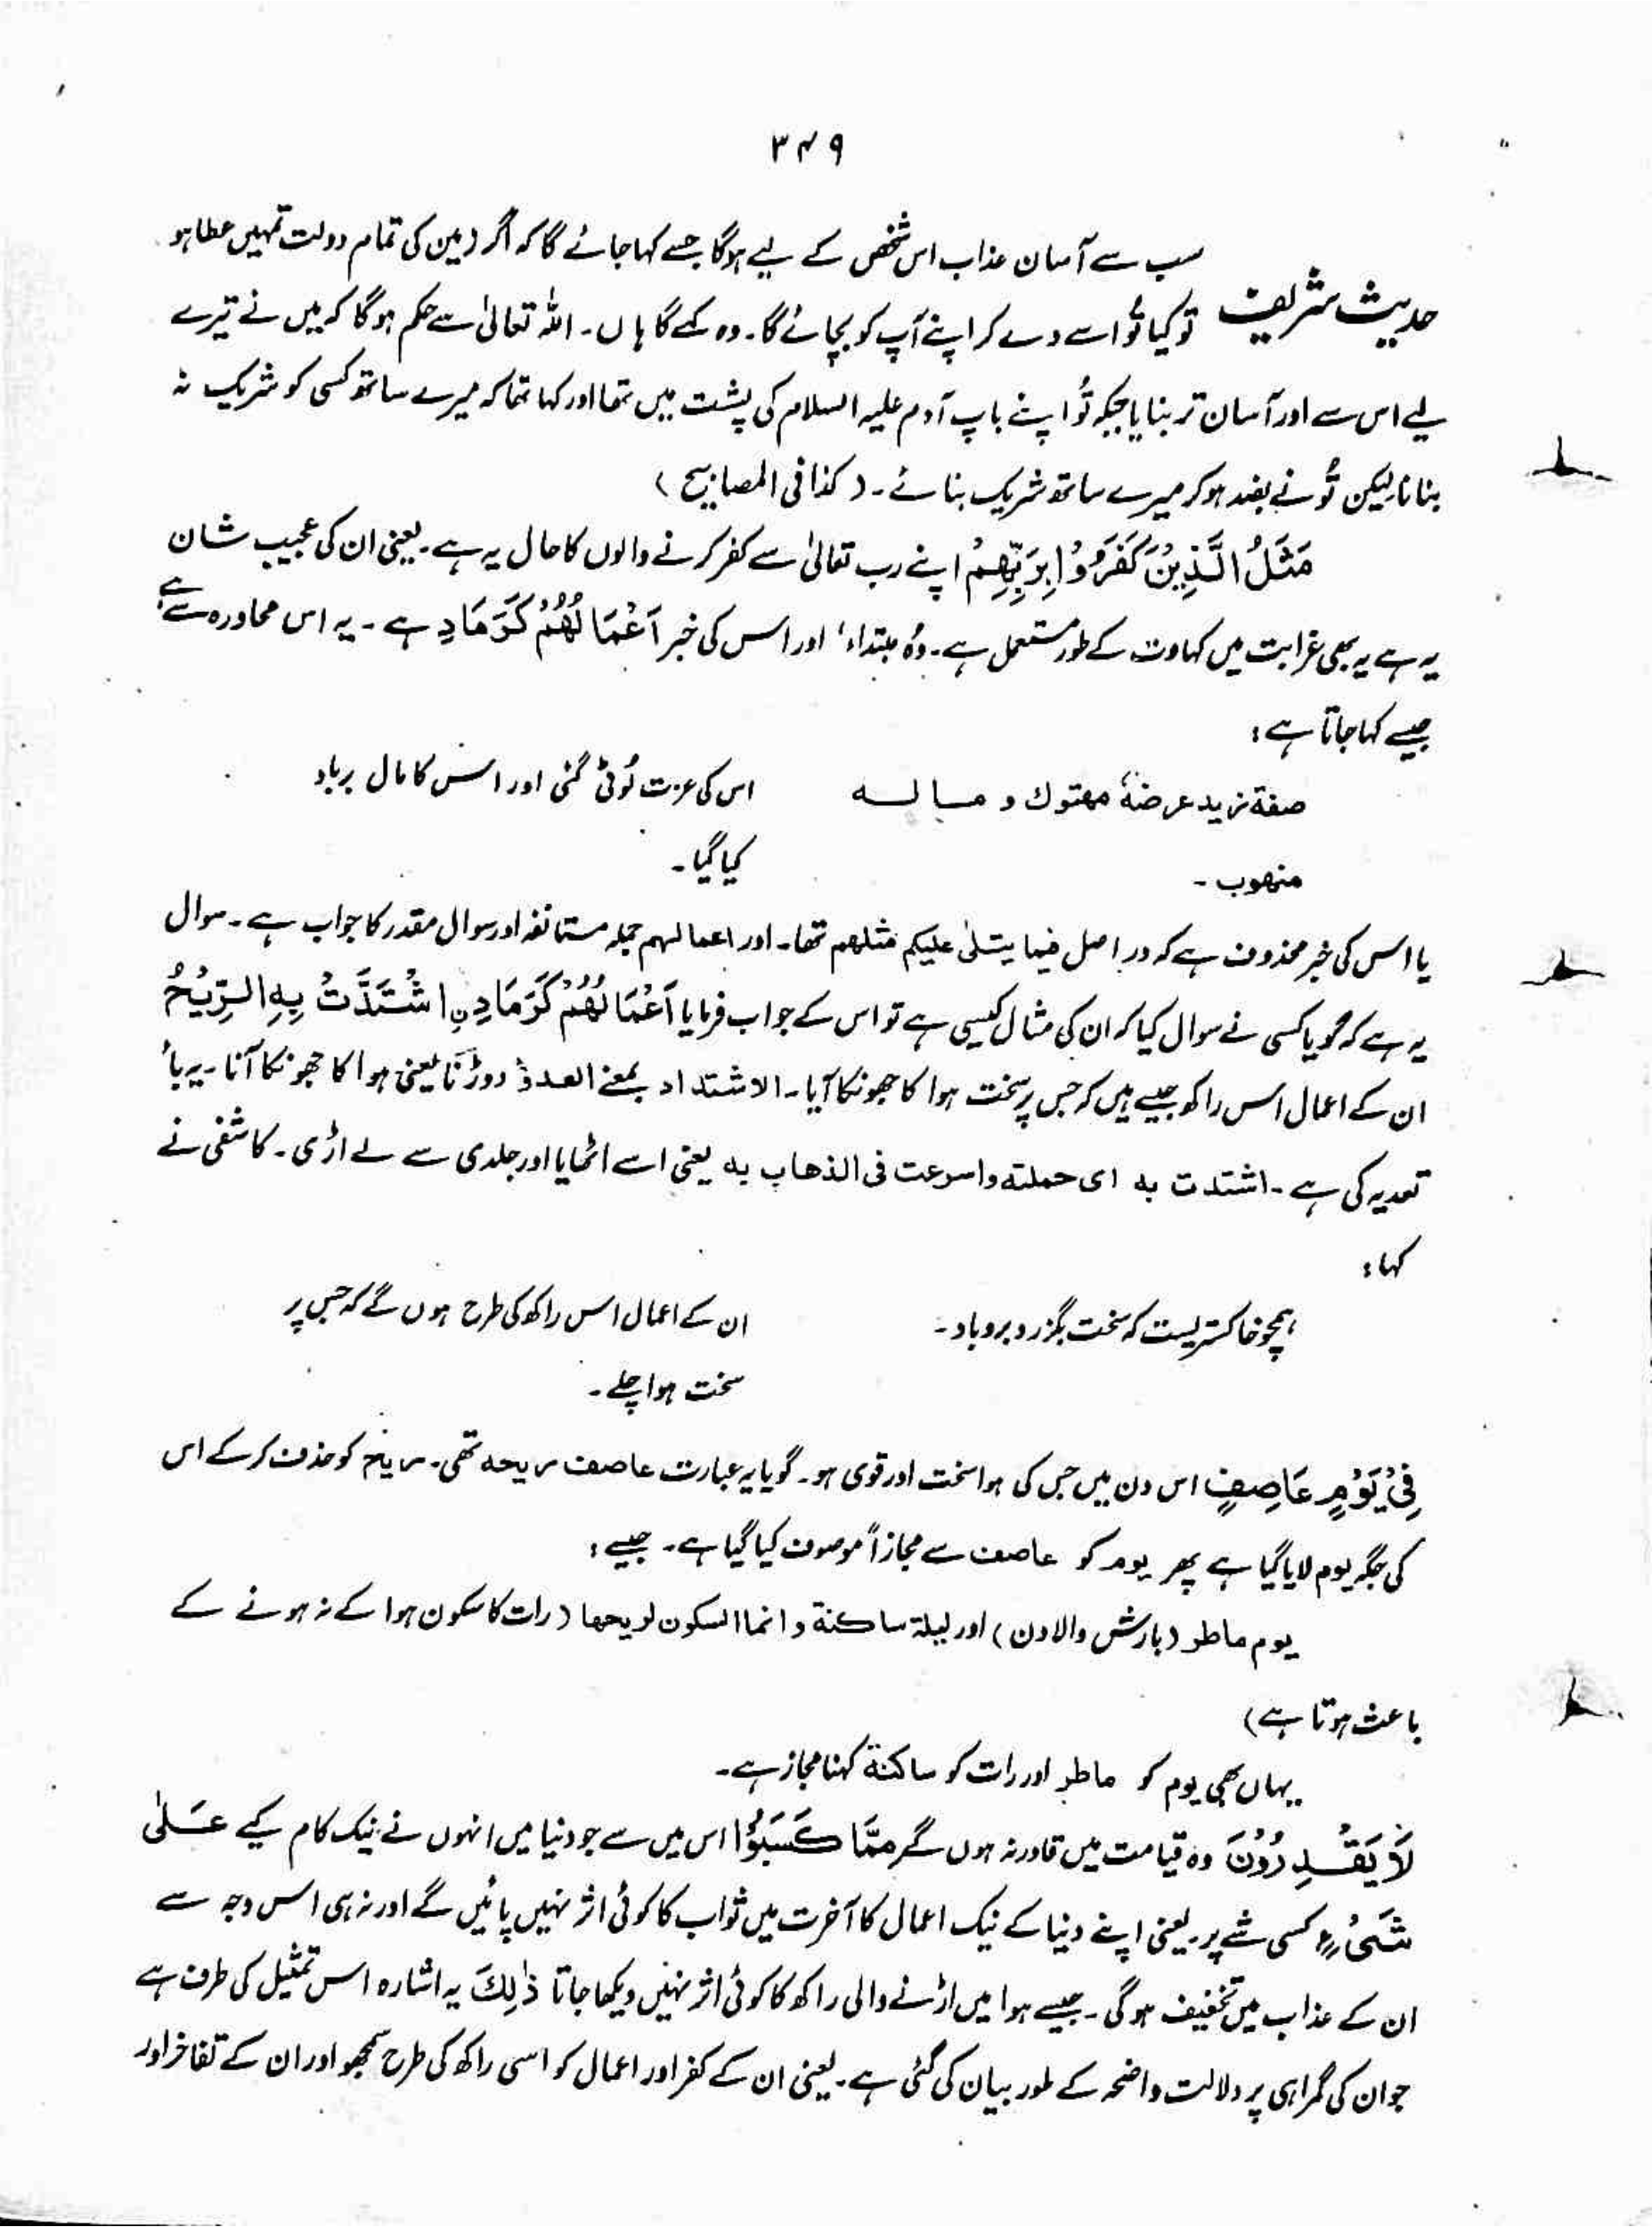 ۳۴۹
سب سے آسان عذاب اس شخص کے لیے ہوگا جسے کہا جائے گا کہ اگر زمین کی تمام دولت تمہیں عطا ہو
حدیث شریف تو کیا تُو اسے دے کر اپنے آپ کو بچائے گا۔ وہ کہے گا ہاں۔ اللہ تعالیٰ سے حکم ہوگا کہ میں نے تیرے
لیے اس سے اور آسان تر بنایا جبکہ تُو اپنے باپ آدم علیہ السلام کی پشت میں تھا اور کہا تھا کہ میرے ساتھ کسی کو شریک نہ
بنانا لیکن تُو نے بضد ہو کر میرے ساتھ شریک بنائے۔ (کذا فی المصابیح)
مَثَلُ الَّذِیْنَ کَفَرُوْا بِرَبِّهِمْ اپنے رب تعالیٰ سے کفر کرنے والوں کا حال یہ ہے۔ یعنی ان کی عجیب شان
یہ ہے یہ بھی غرابت میں کہاوت کے طور مستعمل ہے۔ وُہ مبتداء' اور اس کی خبر اَعْمَالُهُمْ کَرَمَادِ ہے۔ یہ اس محاورہ سے ہے
جیسے کہا جاتا ہے:
صفة زید عرضهٗ مهتوك و ماله اس کی عزت لُوٹی گئی اور اس کا مال برباد
منهوب۔ کیا گیا۔
یا اس کی خبر محذوف ہے کہ در اصل فیما یتلیٰ علیکم مثلھم تھا۔ اور اعمالہم جملہ مستانفہ اور سوال مقدر کا جواب ہے۔ سوال
یہ ہے کہ گویا کسی نے سوال کیا کہ ان کی مثال کیسی ہے تو اس کے جواب فرمایا اَعْمَالُهُمْ کَرَمَادِ نِ اشْتَدَّتْ بِهِ الرِّیْحُ
ان کے اعمال اس راکھ جیسے ہیں کہ جس پر سخت ہوا کا جھونکا آیا۔ الاشتداد بمعنے العدوْ دوڑنا یعنی ہوا کا جھونکا آنا۔ یہ بأ
تعدیہ کی ہے۔ اشتدت به ای حملته واسرعت فی الذهاب به یعنی اسے اٹھایا اور جلدی سے لے اڑی۔ کاشفی نے
کہا:
ہمچو خاکستریست کہ سخت بگزرد برو باد۔ ان کے اعمال اس راکھ کی طرح ہوں گے کہ جس پر
سخت ہوا چلے۔
فِیْ یَوْمٍ عَاصِفٍ اس دن میں جس کی ہوا سخت اور قوی ہو۔ گویا یہ عبارت عاصف ریحه تھی۔ ریح کو حذف کر کے اس
کی جگہ یوم لایا گیا ہے پھر یوم کو عاصف سے مجازاً موصوف کیا گیا ہے۔ جیسے:
یوم ماطر (بارش والا دن) اور لیلة ساکنة و انما السکون لریحها (رات کا سکون ہوا کے نہ ہونے کے
باعث ہوتا ہے)
یہاں بھی یوم کو ماطر اور رات کو ساکنة کہنا مجاز ہے۔
لَا یَقْدِرُوْنَ وہ قیامت میں قادر نہ ہوں گے مِمَّا کَسَبُوْا اس میں سے جو دنیا میں انہوں نے نیک کام کیے عَلٰی
شَیْءٍ کسی شے پر۔ یعنی اپنے دنیا کے نیک اعمال کا آخرت میں ثواب کا کوئی اثر نہیں پائیں گے اور نہ ہی اس وجہ سے
ان کے عذاب میں تخفیف ہوگی۔ جیسے ہوا میں اڑنے والی راکھ کا کوئی اثر نہیں دیکھا جاتا ذٰلِكَ یہ اشارہ اس تمثیل کی طرف ہے
جو ان کی گمراہی پر دلالت واضحہ کے طور بیان کی گئی ہے۔ یعنی ان کے کفر اور اعمال کو اسی راکھ کی طرح سمجھو اور ان کے تفاخر اور